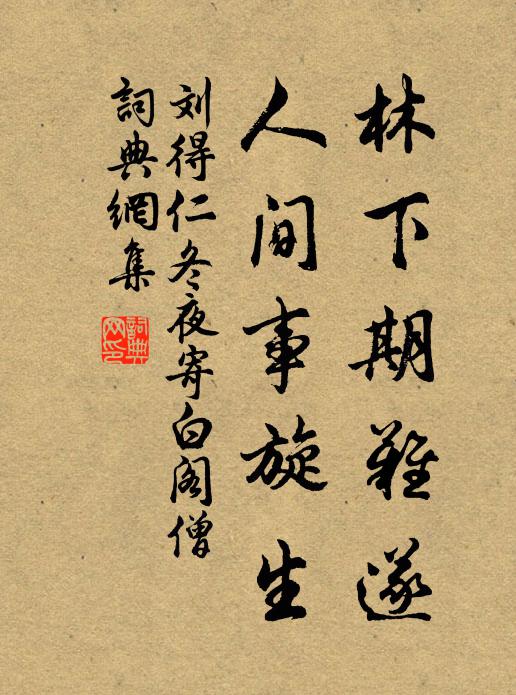 林下期難遂
人间事旋生
刘得仁冬夜寄白阁僧
詞典網集
詞典网印